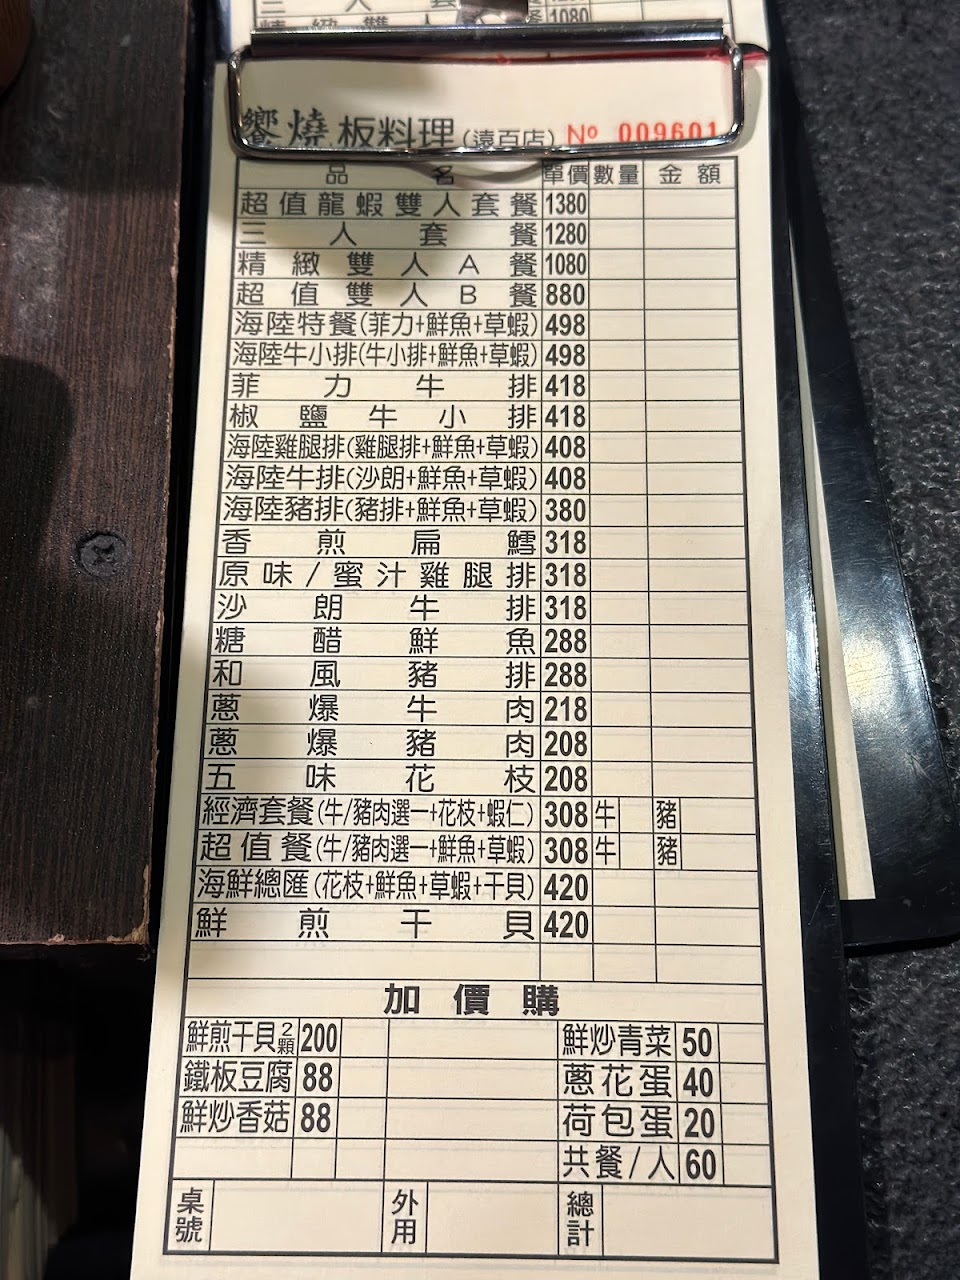 精緻雙人 餐 1080
饗燒.板料理(遠百店) № 009601
品名 單價 數量 金額
超值龍蝦雙人套餐 1380
三人套餐 1280
精緻雙人A餐 1080
超值雙人B餐 880
海陸特餐(菲力+鮮魚+草蝦) 498
海陸牛小排(牛小排+鮮魚+草蝦) 498
菲力牛排 418
椒鹽牛小排 418
海陸雞腿排(雞腿排+鮮魚+草蝦) 408
海陸牛排(沙朗+鮮魚+草蝦) 408
海陸豬排(豬排+鮮魚+草蝦) 380
香煎扁鱈 318
原味/蜜汁雞腿排 318
沙朗牛排 318
糖醋鮮魚 288
和風豬排 288
蔥爆牛肉 218
蔥爆豬肉 208
五味花枝 208
經濟套餐(牛/豬肉選一+花枝+蝦仁) 308 牛 豬
超值餐(牛/豬肉選一+鮮魚+草蝦) 308 牛 豬
海鮮總匯(花枝+鮮魚+草蝦+干貝) 420
鮮煎干貝 420
加價購
鮮煎干貝2顆 200 鮮炒青菜 50
鐵板豆腐 88 蔥花蛋 40
鮮炒香菇 88 荷包蛋 20
共餐/人 60
桌號 外用 總計